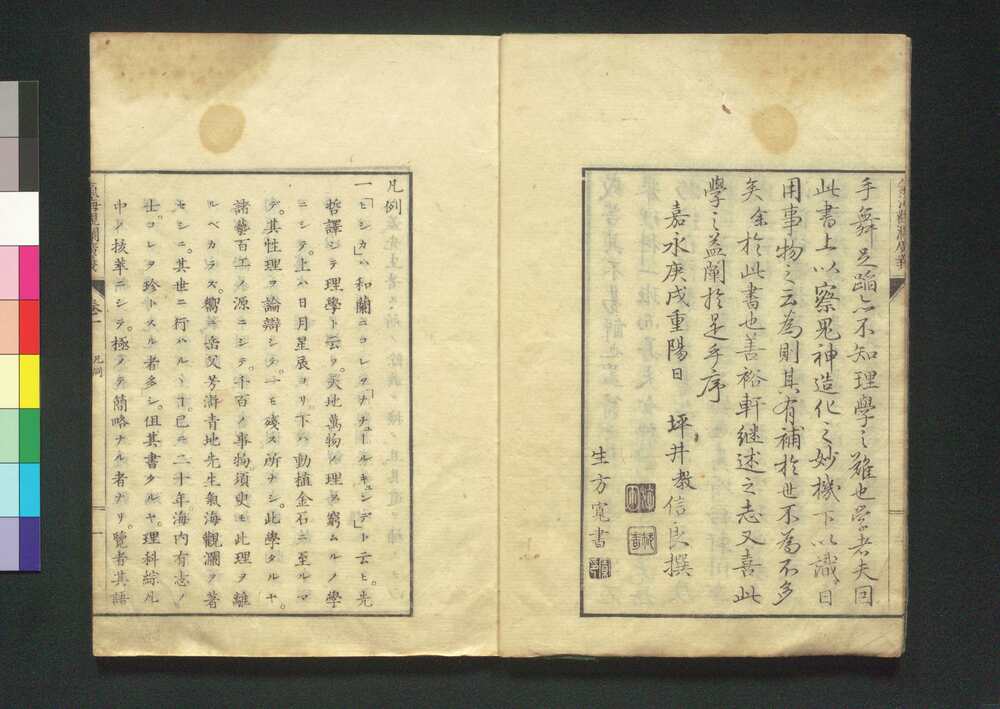 手舞足蹈亦不知理學之難也學者夫因
此書上以察鬼神造化之妙機下以識日
用事物之云為則其有補於世不為不多
矣余於此書也善裕軒継述之志又喜此
學之益闡於是乎序
嘉永庚戌重陽日　坪井教信良撰
生方寛書
凡例
一「ヒシカ」ハ和蘭ニコレヲ「ナチュールキュンデ」ト云ヒ。先
哲譯シテ理學ト云フ。天地萬物ノ理ヲ窮ムルノ學
ニシテ。上ハ日月星辰ヨリ。下ハ動植金石ニ至ルマ
デ。其性理ヲ論辯シテ。一モ殘ス所ナシ。此學タルヤ。
諸藝百工ノ源ニシテ。千百ノ事物須臾モ此理ヲ離
ルベカラズ。嚮ニ岳父芳滸青地先生氣海觀瀾ヲ著
セシニ。其世ニ行ハルヽヿ。已ニ二十年海内有志ノ
士。コレヲ珍トスル者多シ。但其書タルヤ。理科綜凡
中ノ抜萃ニシテ。極メテ簡略ナル者ナリ。覽者其語
氣海觀瀾廣義
卷一
凡例
一